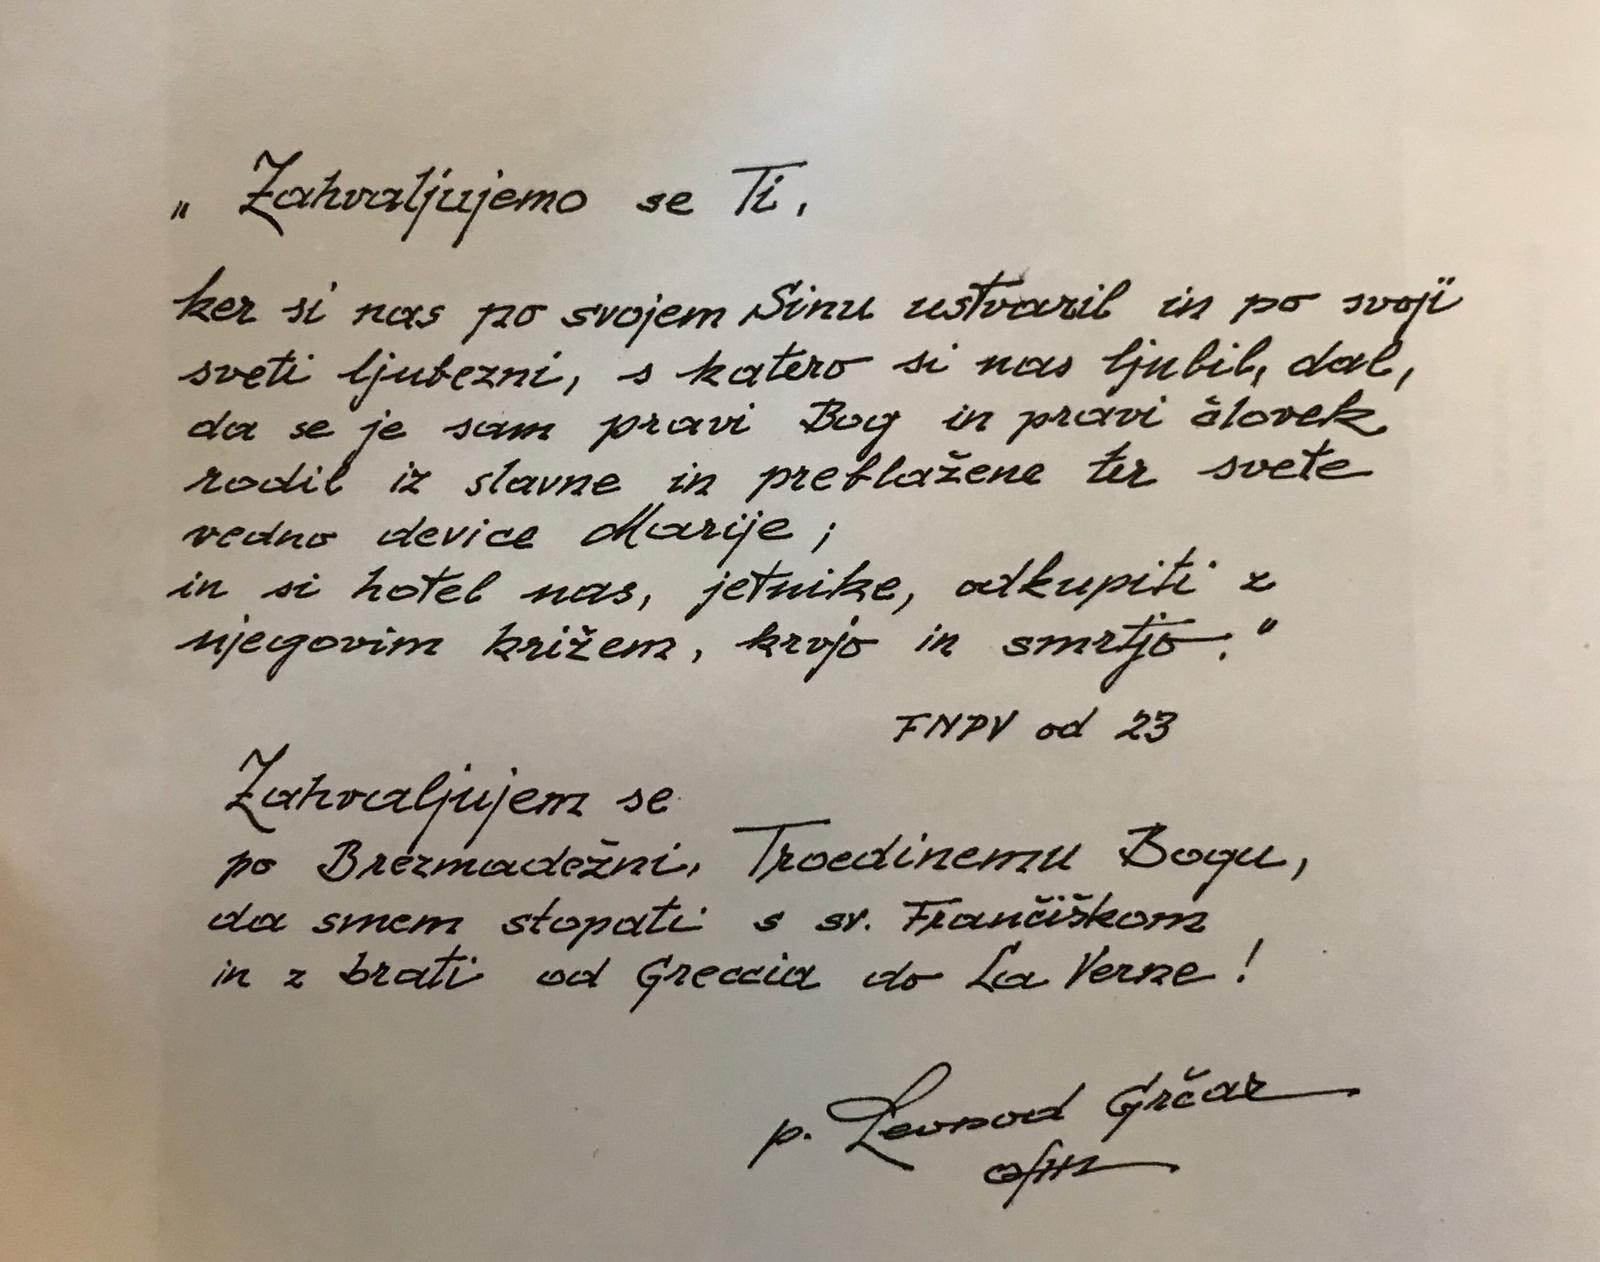 „ Zahvaljujemo se Ti,
ker si nas po svojem Sinu ustvaril in po svoji
sveti ljubezni, s katero si nas ljubil, dal,
da se je sam pravi Bog in pravi človek
rodil iz slavne in preblažene ter svete
vedno device Marije;
in si hotel nas, jetnike, odkupiti z
njegovim križem, krvjo in smrtjo."
FNPV od 23
Zahvaljujem se
po Brezmadežni, Troedinemu Bogu,
da smem stopati s sv. Frančiškom
in z brati od Greccia do La Verne!
p. Leonod Grčar
ofm